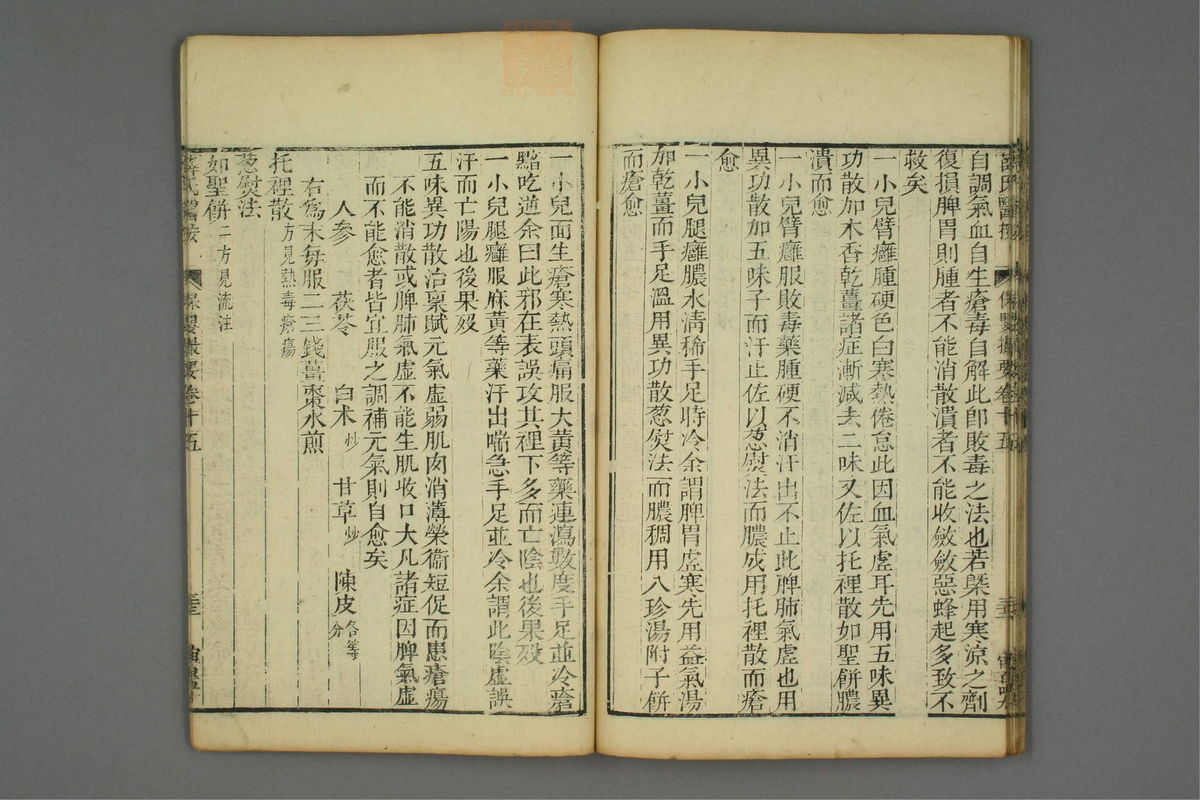 自調氣血自生瘡毒自解此卽敗毒之法也若槩用寒涼之劑
復損脾胃則腫者不能消散潰者不能收斂斂惡蜂起多致不
救矣
一小兒臂癰腫硬色白寒熱倦怠此因血氣虛耳先用五味異
功散加木香乾薑諸症漸減去二味又佐以托裡散如聖餠膿
潰而愈
一小兒臂癰服敗毒藥腫硬不消汗出不止此脾肺氣虛也用
異功散加五味子而汗止佐以葱熨法而膿成用托裡散而瘡
愈
一小兒腿癰膿水淸稀手足時冷余謂脾胃虛寒先用益氣湯
加乾薑而手足溫用異功散葱熨法而膿稠用八珍湯附子餠
而瘡愈
薛氏醫按 保嬰撮要卷十五
一小兒面生瘡寒熱頭痛服大黃等藥連瀉數度手足並冷瘡
黯吃逆余曰此邪在表誤攻其裡下多而亡陰也後果歿
一小兒腿癰服麻黃等藥汗出喘急手足並冷余謂此陰虛誤
汗而亡陽也後果歿
五味異功散治稟賦元氣虛弱肌肉消薄榮衞短促而患瘡瘍
不能消散或脾肺氣虛不能生肌收口大凡諸症因脾氣虛
而不能愈者皆宜服之調補元氣則自愈矣
人參 茯苓 白术炒 甘草炒 陳皮各等分
右爲末每服二三錢薑棗水煎
托裡散方見熱毒瘡瘍
葱熨法
如聖餠二方見流注
薛氏醫按 保嬰撮要卷十五